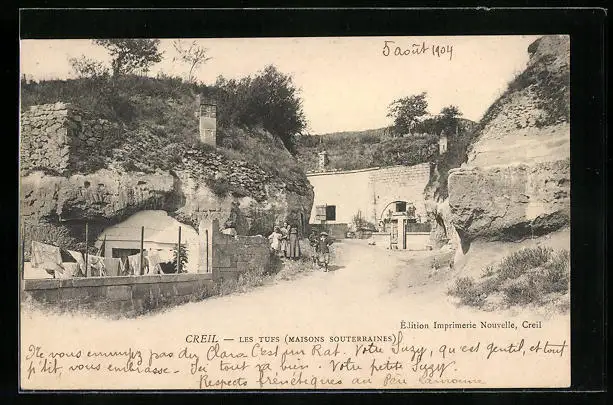 5 août 1904
Édition Imprimerie Nouvelle, Creil
CREIL — LES TUFS (MAISONS SOUTERRAINES)
Ne vous ennuyez pas dis Clara C'est pur Rat. Votre Suzy, qu'est gentil, et tout
p'tit, vous embrasse. Ici tout va bien. Votre petite Suzy.
Respects frénétiques au Père